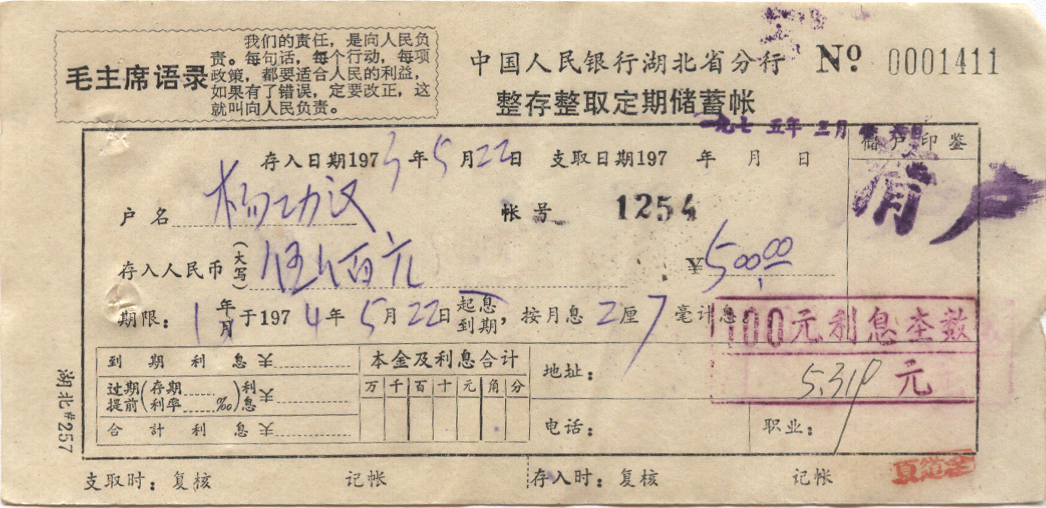 毛主席语录
我们的责任，是向人民负
责。每句话，每个行动，每项
政策，都要适合人民的利益，
如果有了错误，定要改正，这
就叫向人民负责。
中国人民银行湖北省分行 Nº 0001411
整存整取定期储蓄帐
一九七五年三月
存入日期1973年5月22日 支取日期197 年 月 日
储户印鉴
清户
户名 杨功汉 帐号 1254
存入人民币(大写) 伍佰元 ¥500.00
期限：1年月于1974年5月22日起息到期，按月息2厘7毫计息。
100元利息本数
5.319元
到期利息¥
过期提前(存期利率 ‰)利息¥
合计利息¥
本金及利息合计
万千百十元角分
地址：
电话： 职业：
湖北#257
支取时：复核 记帐 存入时：复核 记帐